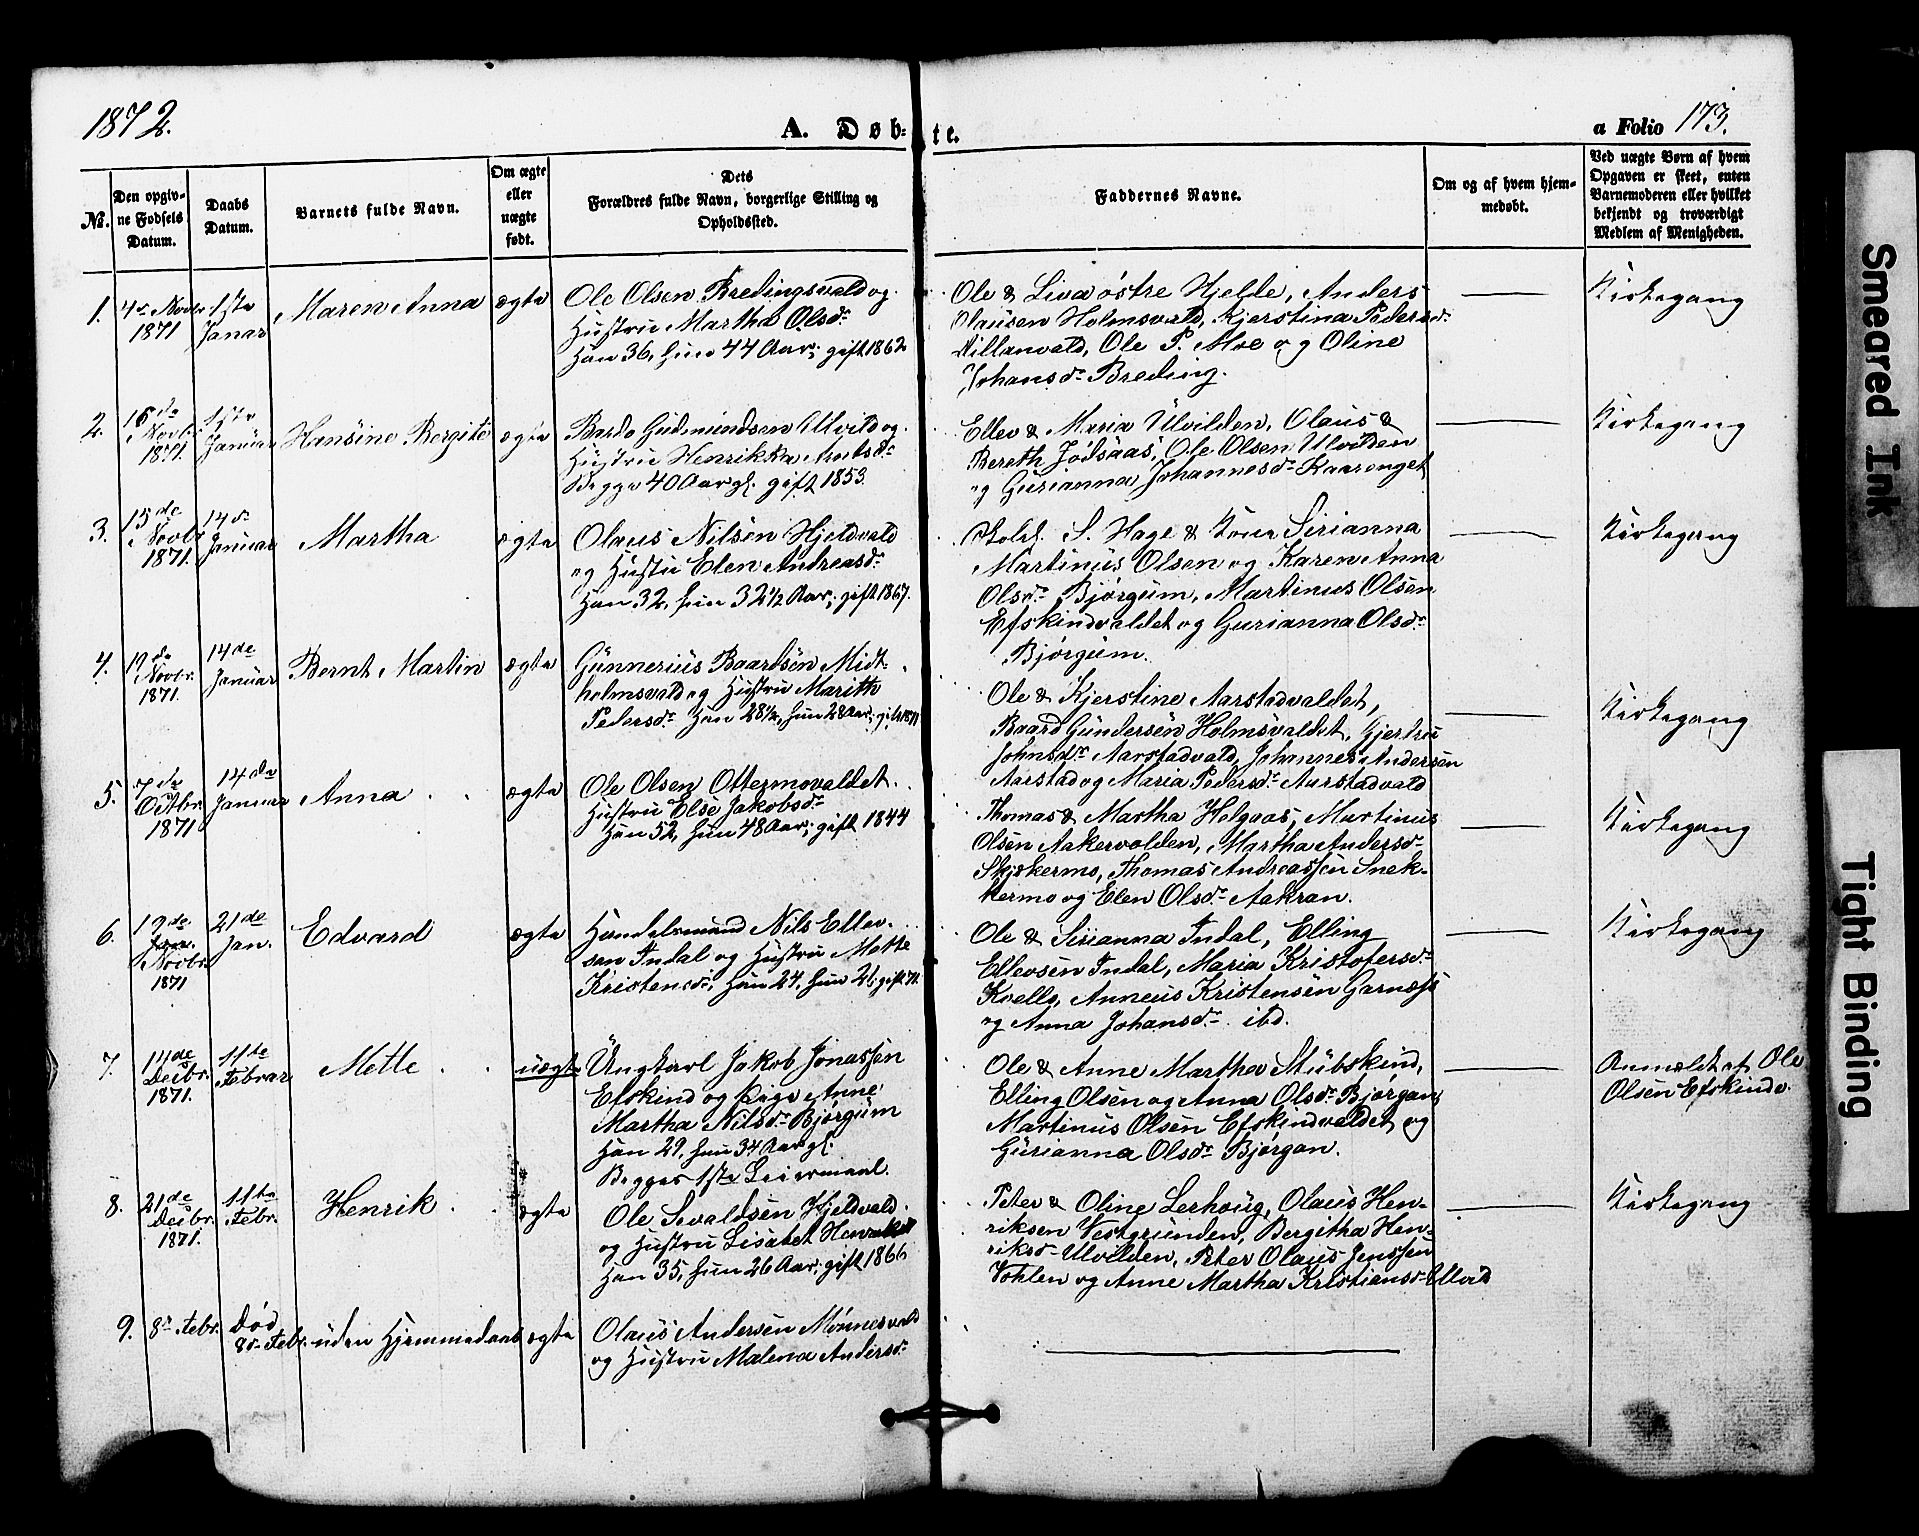 1872.
A. Døb-te.
a Folio 173.
No.
Den opgiv-
ne Fødsels
Datum.
Daabs
Datum.
Barnets fulde Navn.
Om ægte
eller
uægte
født.
Dets
Forældres fulde Navn, borgerlige Stilling og
Opholdssted.
Faddernes Navne.
Om og af hvem hjem-
medøbt.
Ved uægte Børn af hvem
Opgaven er skeet, enten
Barnemoderen eller hvilket
bekjendt og troværdigt
Medlem af Menigheden.
1.
4de Novbr
1871
1ste
Januar
Maren Anna
ægte
Ole Olsen Bredingsvald og
Hustru Martha Olsdr
Han 36, hun 44 Aar; gift 1862
Ole & Liva østre Hjelde, Anders
Olausen Holmsvald, Kjerstina Pedersdr
Villanvald, Ole P. Moe og Oline
Johansdr Breding.
Kirkegang
2.
de
Novbr
1871.
1ste
Januar
Hansine Bergite
ægte
Bardo Gudmundsen Ulvild og
Hustru Henrikka
Begge 40 Aar gl. gift 1853.
Ellev & Maria Ulvilden, Olaus &
Bereth Jødsaas, Ole Olsen Ulvilden
og Gurianna Johannesdr Kaarenget
Kirkegang
3.
15de
Novbr
1871.
14de
Januar
Martha
ægte
Olaus Nilsen Hjeldvald
og Hustru Elen Andreasdr
Han 32, hun 32 1/2 Aar; gift 1867.
S. Hage & Kone Sirianna
Martinus Olsen og Karen Anna
Olsdr Bjørgum, Martinus Olsen
Efskindvaldet og Gurianna Olsdr
Bjørgum.
Kirkegang
4.
de
Novbr.
1871.
14de
Januar
Bernt Martin
ægte
Gunnerius Baardsen Midt-
holmsvald og Hustru Marith
Pedersdr Han 28 1/2, hun 28 Aar; gift 1871
Ole & Kjerstine Aarstadvaldet,
Baard Gundersen Holmsvaldet, Gjertru
Johnsdr Aarstadvald, Johannes Andersen
Aarstad og Maria Pedersdr Aarstadvald
Kirkegang
5.
7de
Octbr.
1871
14de
Januar
Anna
ægte
Ole Olsen Ottermovaldet
Hustru Else Jakobsdr
Han 52, hun 48 Aar; gift 1844
Thomas & Martha Helgaas, Martinus
Olsen Aakervolden, Martha Andersdr
Skjøkermo, Thomas Andreassen Snek-
kermo og Elen Olsdr Aakran.
Kirkegang
6.
19de
Novbr.
1871
21de
Jan.
Edvard
ægte
Handelsmand Nils Ellev-
sen Indal og Hustru Mette
Kristensdr, Han 24, hun 21; gift 71.
Ole & Sirianna Indal, Elling
Ellevsen Indal, Maria Kristofersdr
Kvello, Anneus Kristensen Garnæss
og Anna Johansdr ibd.
Kirkegang
7.
14de
Decbr.
1871.
11te
Februar
Mette
uægte
Ungkarl Jakob Jonassen
Efskind og Pige Anne
Martha Nilsdr Bjørgum
Han 29, hun 34 Aar gl.
Begges 1ste Leiermaal.
Ole & Anne Martha Stubskind,
Elling Olsen og Anna Olsdr Bjørgan,
Martinus Olsen Efskindvaldet og
Gurianna Olsdr Bjørgan.
Anmeldt af Ole
Olsen Efskindv.
8.
21de
Decbr.
1871.
11te
Febr.
Henrik
ægte
Ole Sevaldsen Hjeldvald
og Hustru Lisabet Henriksdr
Han 35, hun 26 Aar; gift 1866
Peter & Oline Lerhoug, Olaus Hen-
riksen Vestgrunden, Bergitha Hen-
riksdr Ulvilden, Peter Olaus Jenssen
Vohlen og Anne Martha Kristiansdr Ulvild
Kirkegang
9.
8de Febr.
Død
8de Febr. uden Hjemmedaab
ægte
Olaus Andersen Mønnesvald
og Hustru Malena Andersdr
Smeared Ink
Tight Binding